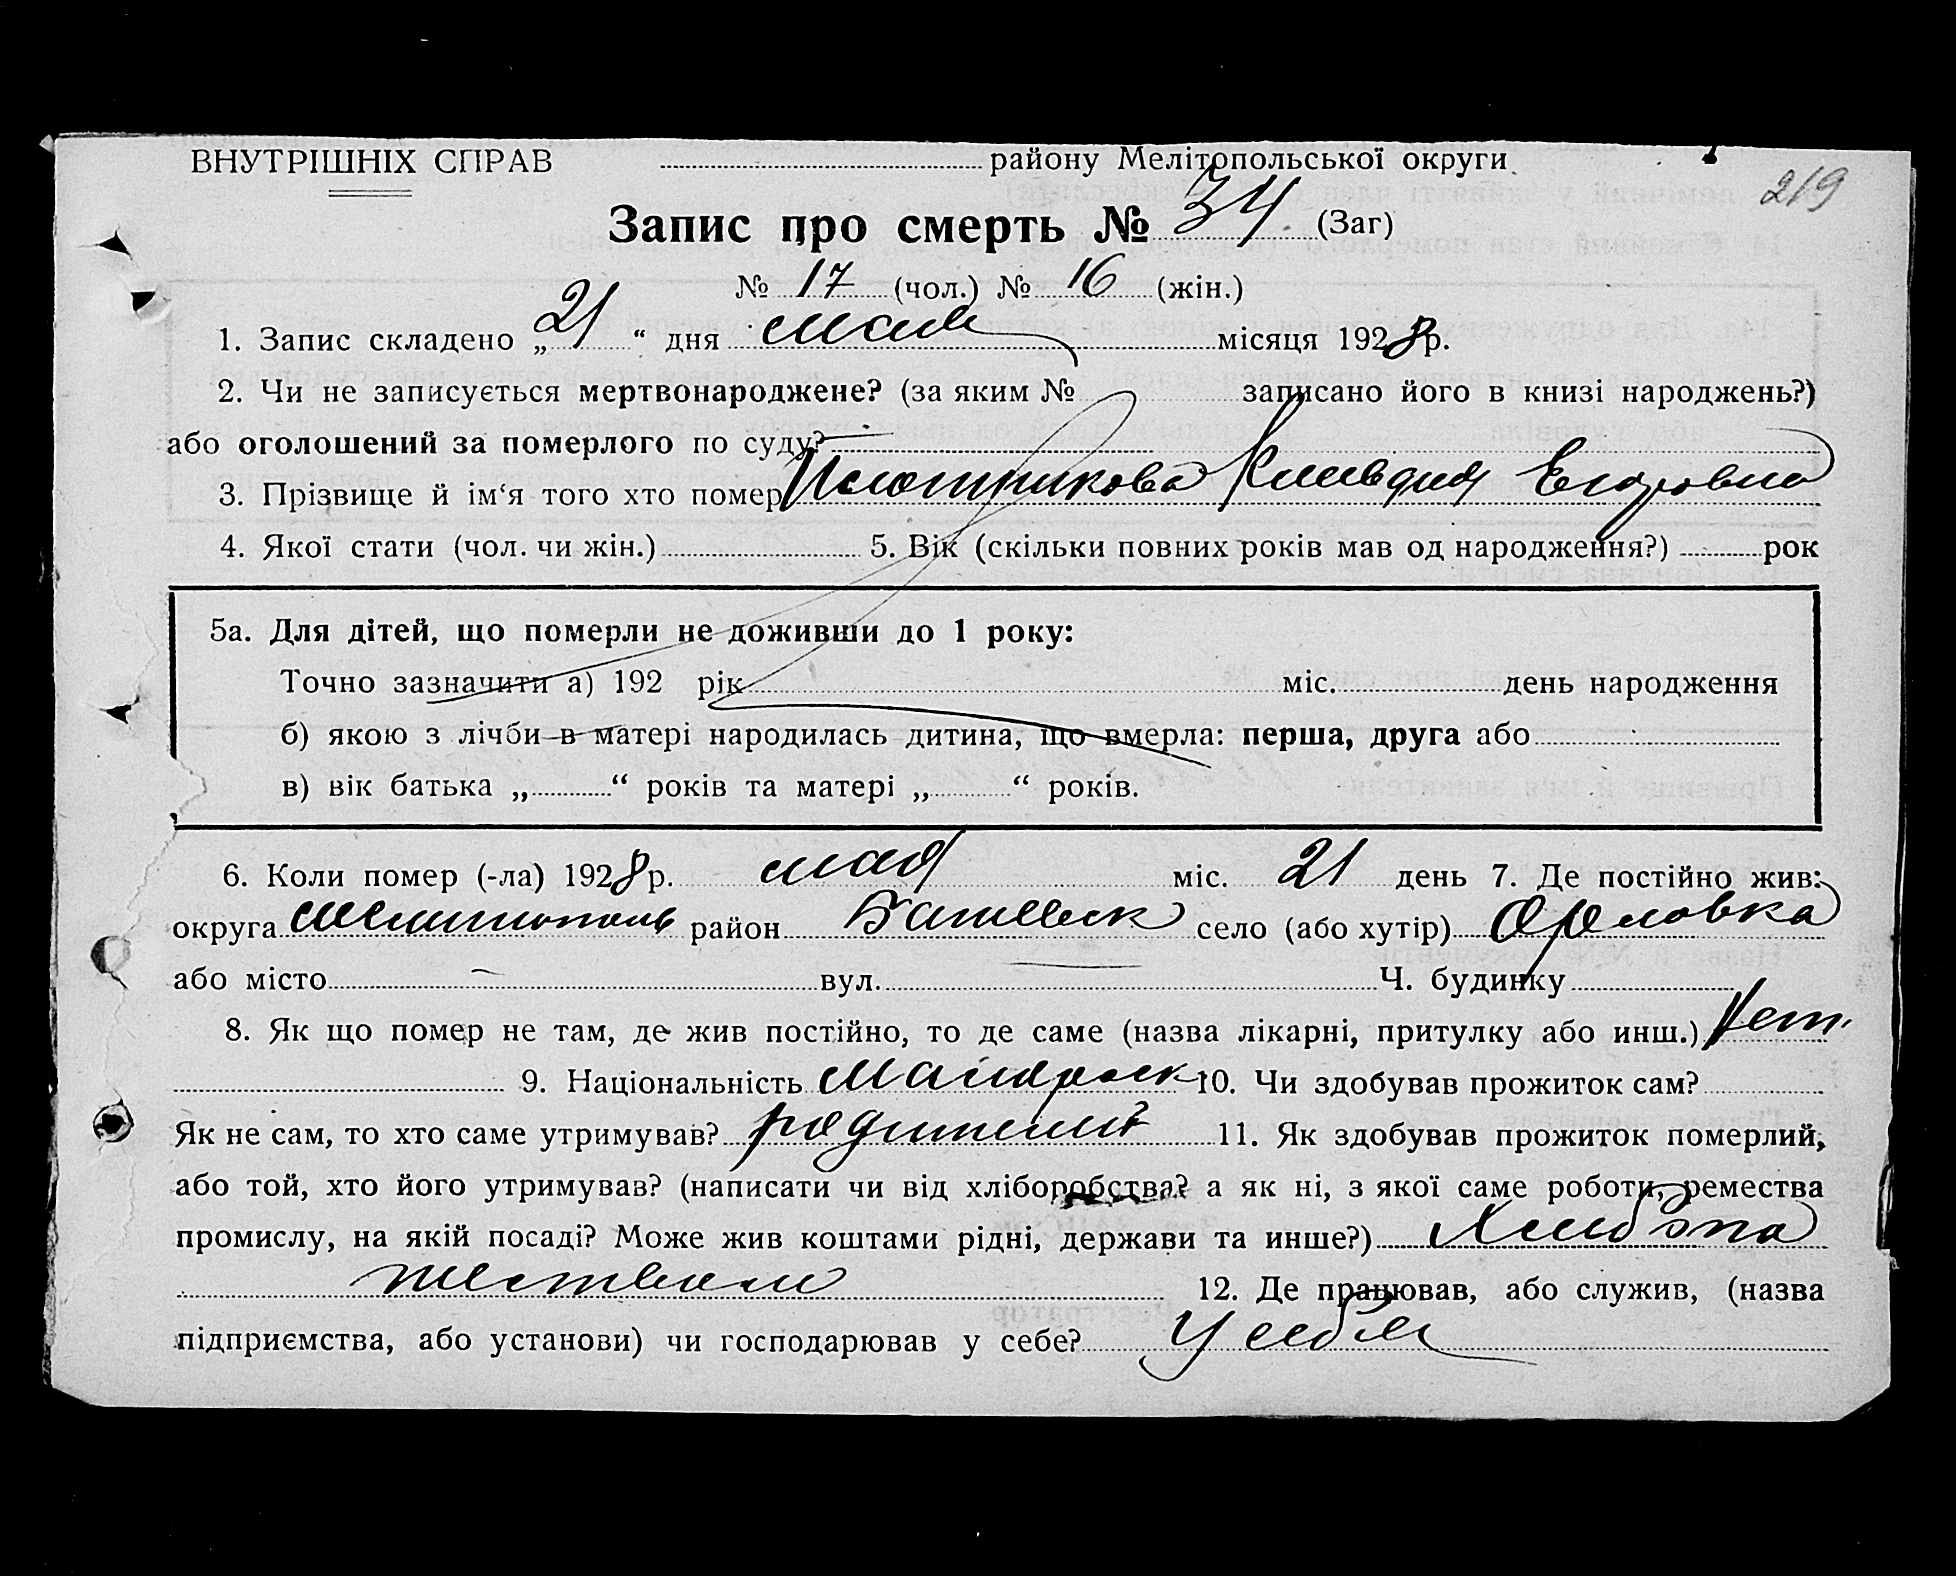 ВНУТРІШНІХ СПРАВ району Мелітопольської округи
219
Запис про смерть № 34 (Заг)
№ 17 (чол.) № 16 (жін.)
1. Запис складено „21“ дня мая місяця 1928 р.
2. Чи не записується мертвонароджене? (за яким № записано його в книзі народжень?)
або оголошений за померлого по суду?
3. Прізвище й ім‘я того хто помер Плотникова Клавдия Егоровна
4. Якої стати (чол. чи жін.) 5. Вік (скільки повних років мав од народження?) рок
5а. Для дітей, що померли не доживши до 1 року:
Точно зазначити а) 192 рік міс. день народження
б) якою з лічби в матері народилась дитина, що вмерла: перша, друга або
в) вік батька „ “ років та матері „ “ років.
6. Коли помер (-ла) 1928 р. мая міс. 21 день 7. Де постійно жив:
округа Мелитополь район село (або хутір) Орловка
або місто — вул. — Ч. будинку
8. Як що помер не там, де жив постійно, то де саме (назва лікарні, притулку або инш.) Нет
9. Національність 10. Чи здобував прожиток сам?
Як не сам, то хто саме утримував? родители 11. Як здобував прожиток померлий,
або той, хто його утримував? (написати чи від хліборобства? а як ні, з якої саме роботи, ремества
промислу, на якій посаді? Може жив коштами рідні, держави та инше?) Хлебопа
шеством 12. Де працював, або служив, (назва
підприємства, або установи) чи господарював у себе? У себя